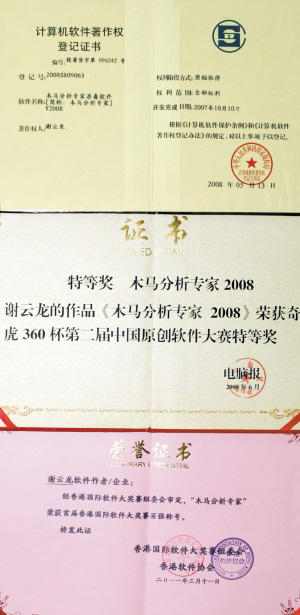 计算机软件著作权
登记证书
编号: 软著登字第 096242 号
登 记 号: 2008SR09063
软件名称: 木马分析专家杀毒软件
[简称: 木马分析专家]
V2008
著作权人: 谢云龙
权利取得方式: 原始取得
权 利 范 围: 全部权利
开发完成日期: 2007年10月10日
根据《计算机软件保护条例》和《计算机软件
著作权登记办法》的规定,对以上事项予以登记。
2008 年 05 月 13 日
证书
CREDENTIAL
特等奖 木马分析专家 2008
谢云龙的作品《木马分析专家 2008》荣获奇
虎 360 杯第二届中国原创软件大赛特等奖
电脑报
2008 年 6 月
荣誉证书
HONORARY CREDENTIAL
谢云龙软件作者/企业:
经香港国际软件大奖赛组委会审定,“木马分析专家”
荣获首届香港国际软件大奖赛百强称号。
特发此证
香港国际软件大奖赛组委会
香港软件协会
二〇一一年三月十一日